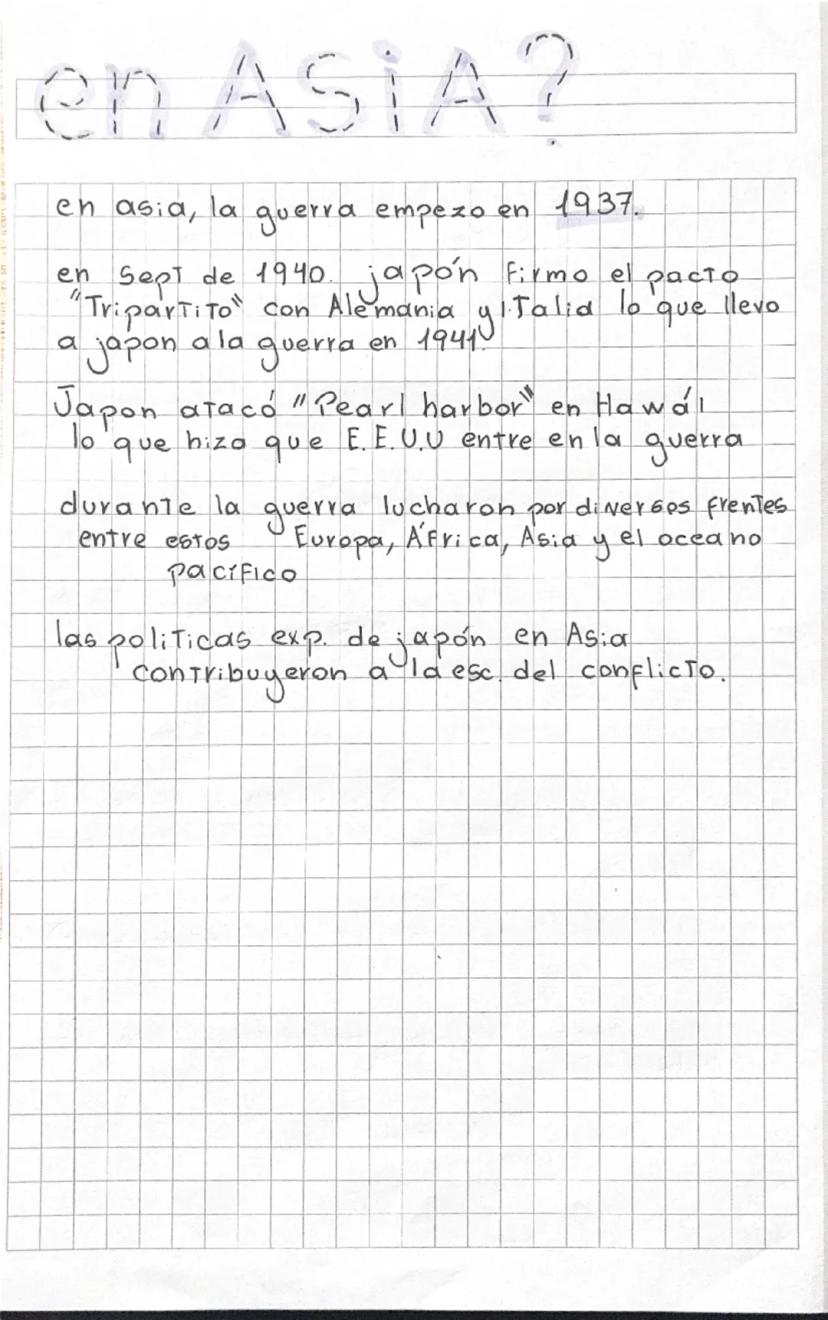 en ASiA?
en asia, la guerra empezo en 1937.
en Sept de 1940. japón Firmo el pacto
"Tripartito" con Alemania y Italia lo que llevo
a japon a la guerra en 1941.
Japon atacó "Pearl harbor" en Hawái
lo que hizo que E.E.U.U entre en la guerra
durante la guerra lucharon por diversos frentes
entre estos Europa, África, Asia y el oceano
pacífico
las politicas exp. de japón en Asia
contribuyeron a la esc. del conflicto.